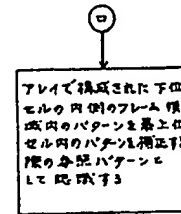 ロ
アレイで構成された下位
セルの内側のフレーム領
域内のパターンを最上位
セル内のパターンを補正する
際の参照パターンと
して認識する